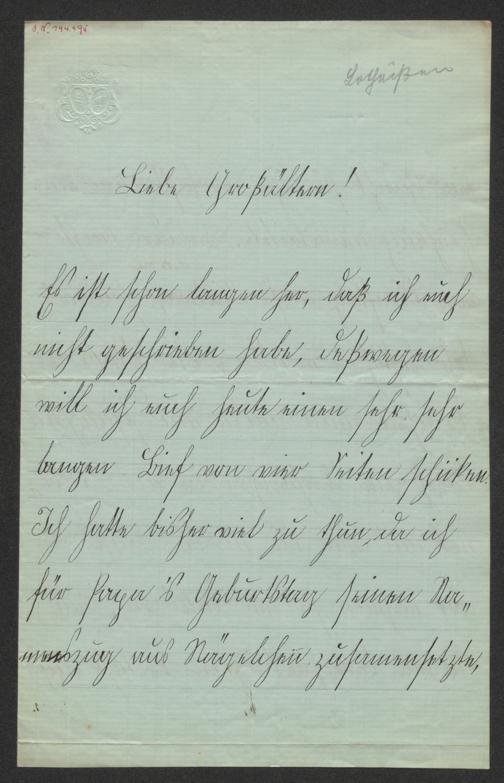 J. N. 194.496
Lotheißen
Liebe Großältern!
Es ist schon langen her, daß ich euch
nicht geschrieben habe, deßwegen
will ich euch heute einen sehr, sehr
langen Bief von vier Seiten schicken.
Ich hatte bisher viel zu thun, da ich
für Papa's Geburtstag seinen Na„
menszug aus Nägelchen zusamensetzte,